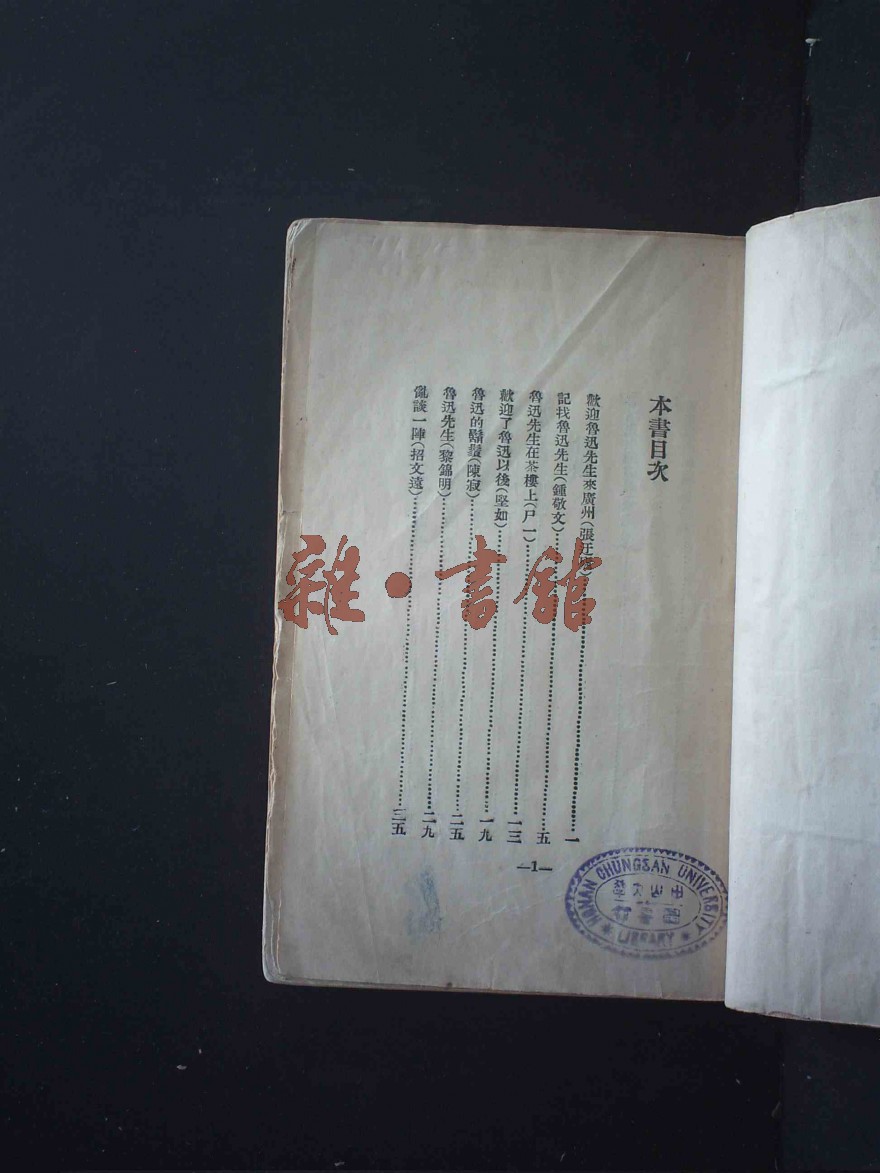 本書目次
歡迎魯迅先生來廣州(張迂……一
記找魯迅先生(鍾敬文)……五
魯迅先生在茶樓上(尸一)……一三
歡迎了魯迅以後(堅如)……一九
魯迅的鬍鬚(陳寂)……二五
魯迅先生(黎錦明)……二九
亂談一陣(招文遠)……三五
—1—
雜·書館
HONAN CHUNGSAN UNIVERSITY
LIBRARY